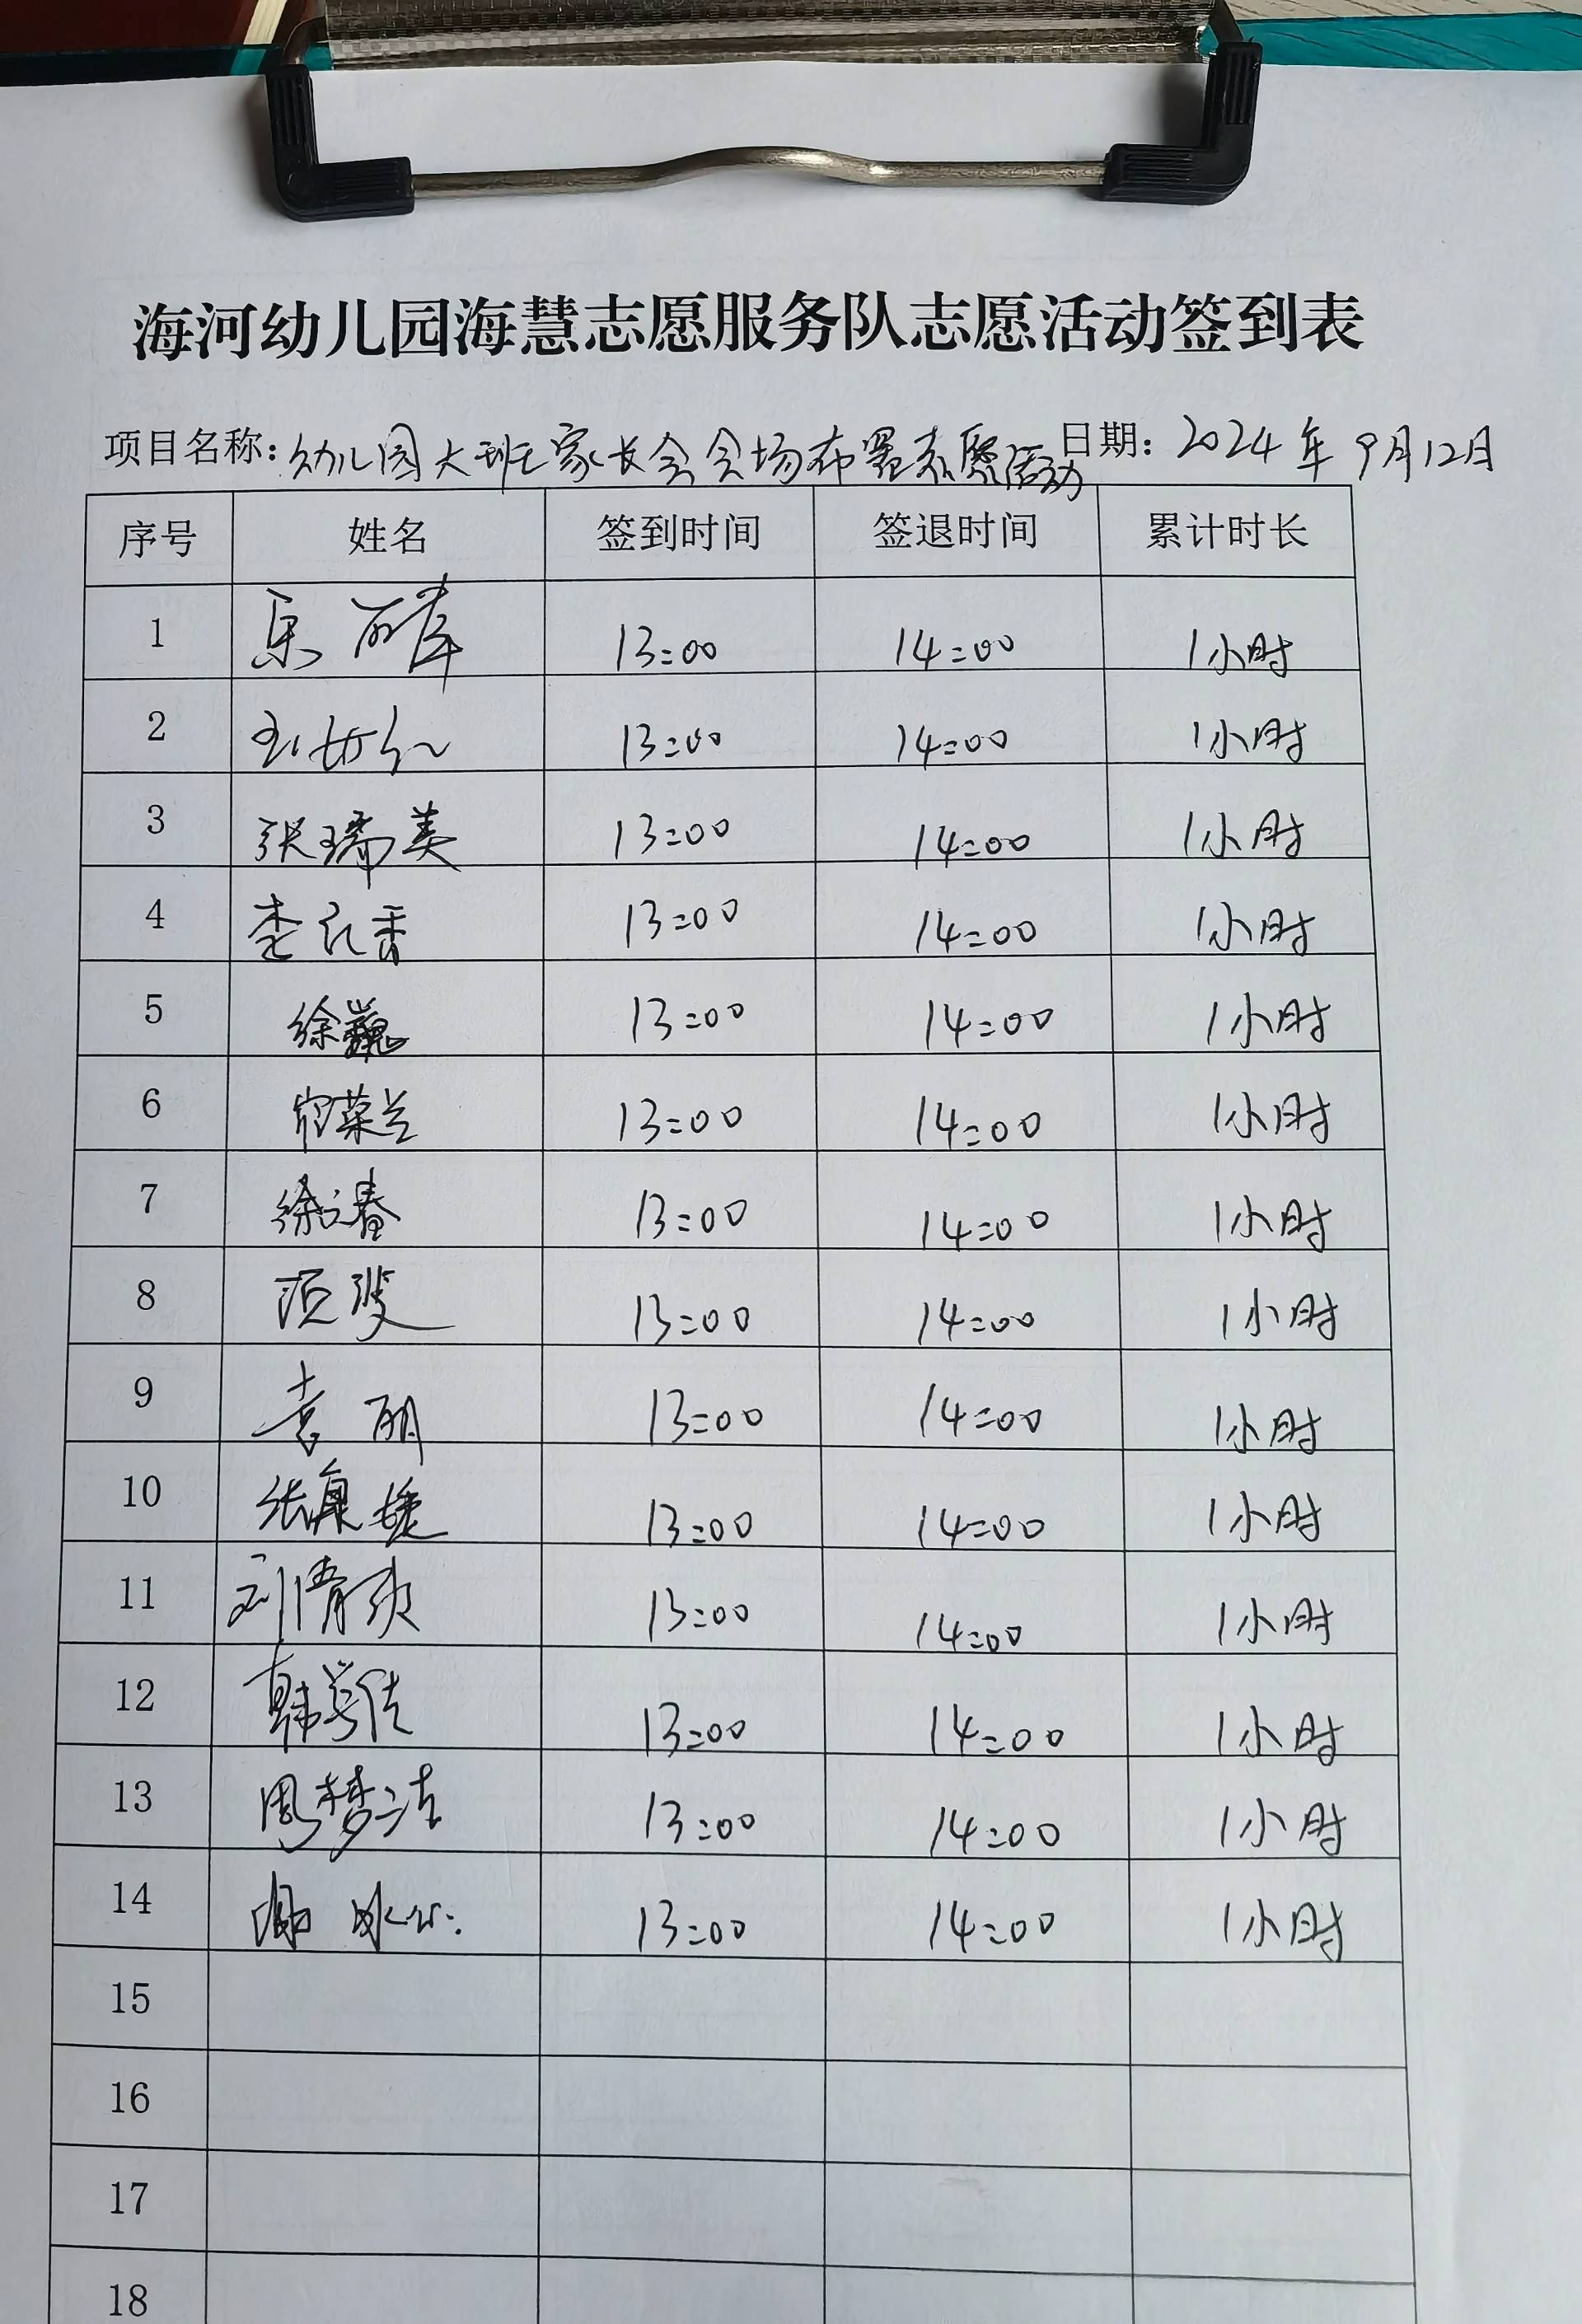 海河幼儿园海慧志愿服务队志愿活动签到表
项目名称：幼儿园大班家长会会场布置志愿活动 日期：2024年9月12日
序号 姓名 签到时间 签退时间 累计时长
1 13:00 14:00 1小时
2 13:00 14:00 1小时
3 张瑞美 13:00 14:00 1小时
4 13:00 14:00 1小时
5 徐巍 13:00 14:00 1小时
6 13:00 14:00 1小时
7 徐 春 13:00 14:00 1小时
8 13:00 14:00 1小时
9 袁丽 13:00 14:00 1小时
10 张 13:00 14:00 1小时
11 刘倩 13:00 14:00 1小时
12 韩雪佳 13:00 14:00 1小时
13 周梦洁 13:00 14:00 1小时
14 13:00 14:00 1小时
15
16
17
18